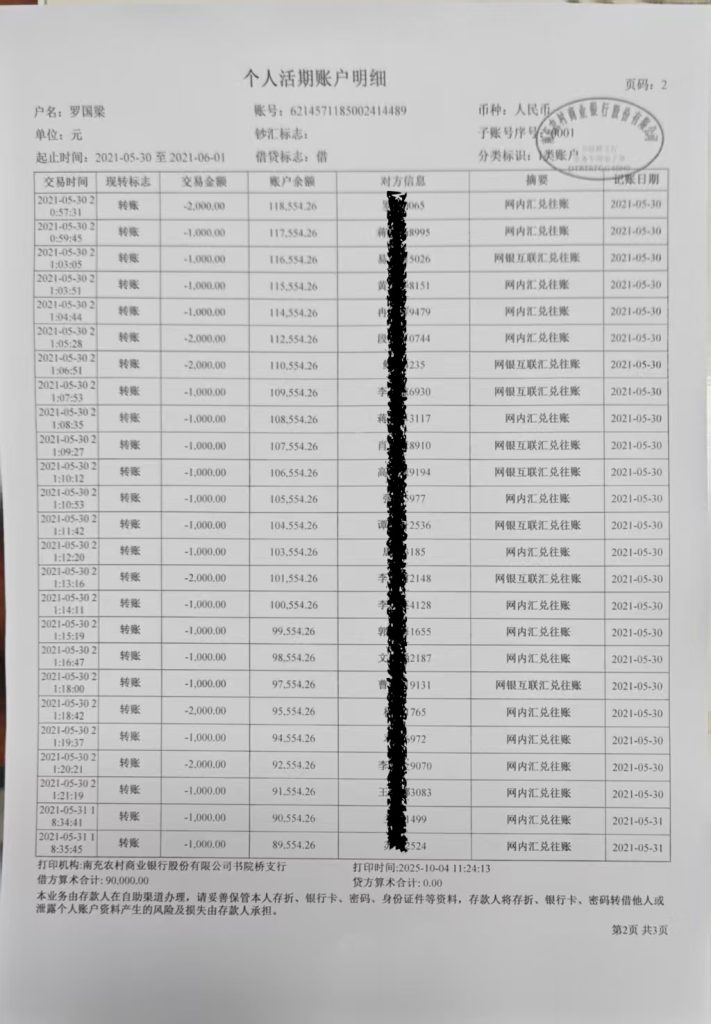 个人活期账户明细
页码：2
户名：罗国梁 账号：6214571185002414489 币种：人民币
单位：元 钞汇标志： 子账号序号：0001
起止时间：2021-05-30 至 2021-06-01 借贷标志：借 分类标识：I类账户
交易时间 现转标志 交易金额 账户余额 对方信息 摘要 记账日期
2021-05-30 2
0:57:31 转账 -2,000.00 118,554.26 065 网内汇兑往账 2021-05-30
2021-05-30 2
0:59:45 转账 -1,000.00 117,554.26 蒋 8995 网内汇兑往账 2021-05-30
2021-05-30 2
1:03:05 转账 -1,000.00 116,554.26 易 5026 网银互联汇兑往账 2021-05-30
2021-05-30 2
1:03:51 转账 -1,000.00 115,554.26 黄 8151 网内汇兑往账 2021-05-30
2021-05-30 2
1:04:44 转账 -1,000.00 114,554.26 冉 9479 网内汇兑往账 2021-05-30
2021-05-30 2
1:05:28 转账 -2,000.00 112,554.26 段 0744 网内汇兑往账 2021-05-30
2021-05-30 2
1:06:51 转账 -2,000.00 110,554.26 235 网银互联汇兑往账 2021-05-30
2021-05-30 2
1:07:53 转账 -1,000.00 109,554.26 李 6930 网银互联汇兑往账 2021-05-30
2021-05-30 2
1:08:35 转账 -1,000.00 108,554.26 蒋 3117 网内汇兑往账 2021-05-30
2021-05-30 2
1:09:27 转账 -1,000.00 107,554.26 肖 8910 网银互联汇兑往账 2021-05-30
2021-05-30 2
1:10:12 转账 -1,000.00 106,554.26 高 9194 网银互联汇兑往账 2021-05-30
2021-05-30 2
1:10:53 转账 -1,000.00 105,554.26 张 5977 网内汇兑往账 2021-05-30
2021-05-30 2
1:11:42 转账 -1,000.00 104,554.26 谭 2536 网银互联汇兑往账 2021-05-30
2021-05-30 2
1:12:20 转账 -1,000.00 103,554.26 185 网内汇兑往账 2021-05-30
2021-05-30 2
1:13:16 转账 -2,000.00 101,554.26 李 2148 网银互联汇兑往账 2021-05-30
2021-05-30 2
1:14:11 转账 -1,000.00 100,554.26 李 4128 网内汇兑往账 2021-05-30
2021-05-30 2
1:15:19 转账 -1,000.00 99,554.26 郭 1655 网内汇兑往账 2021-05-30
2021-05-30 2
1:16:47 转账 -1,000.00 98,554.26 文 2187 网内汇兑往账 2021-05-30
2021-05-30 2
1:18:00 转账 -1,000.00 97,554.26 曹 9131 网银互联汇兑往账 2021-05-30
2021-05-30 2
1:18:42 转账 -2,000.00 95,554.26 765 网内汇兑往账 2021-05-30
2021-05-30 2
1:19:37 转账 -1,000.00 94,554.26 6972 网内汇兑往账 2021-05-30
2021-05-30 2
1:20:21 转账 -2,000.00 92,554.26 李 29070 网内汇兑往账 2021-05-30
2021-05-30 2
1:21:19 转账 -1,000.00 91,554.26 王 3083 网内汇兑往账 2021-05-30
2021-05-31 1
8:34:41 转账 -1,000.00 90,554.26 1499 网内汇兑往账 2021-05-31
2021-05-31 1
8:35:45 转账 -1,000.00 89,554.26 2524 网内汇兑往账 2021-05-31
打印机构:南充农村商业银行股份有限公司书院桥支行 打印时间:2025-10-04 11:24:13
借方算术合计: 90,000.00 贷方算术合计: 0.00
本业务由存款人在自助渠道办理，请妥善保管本人存折、银行卡、密码、身份证件等资料，存款人将存折、银行卡、密码转借他人或
泄露个人账户资料产生的风险及损失由存款人承担。
第2页 共3页